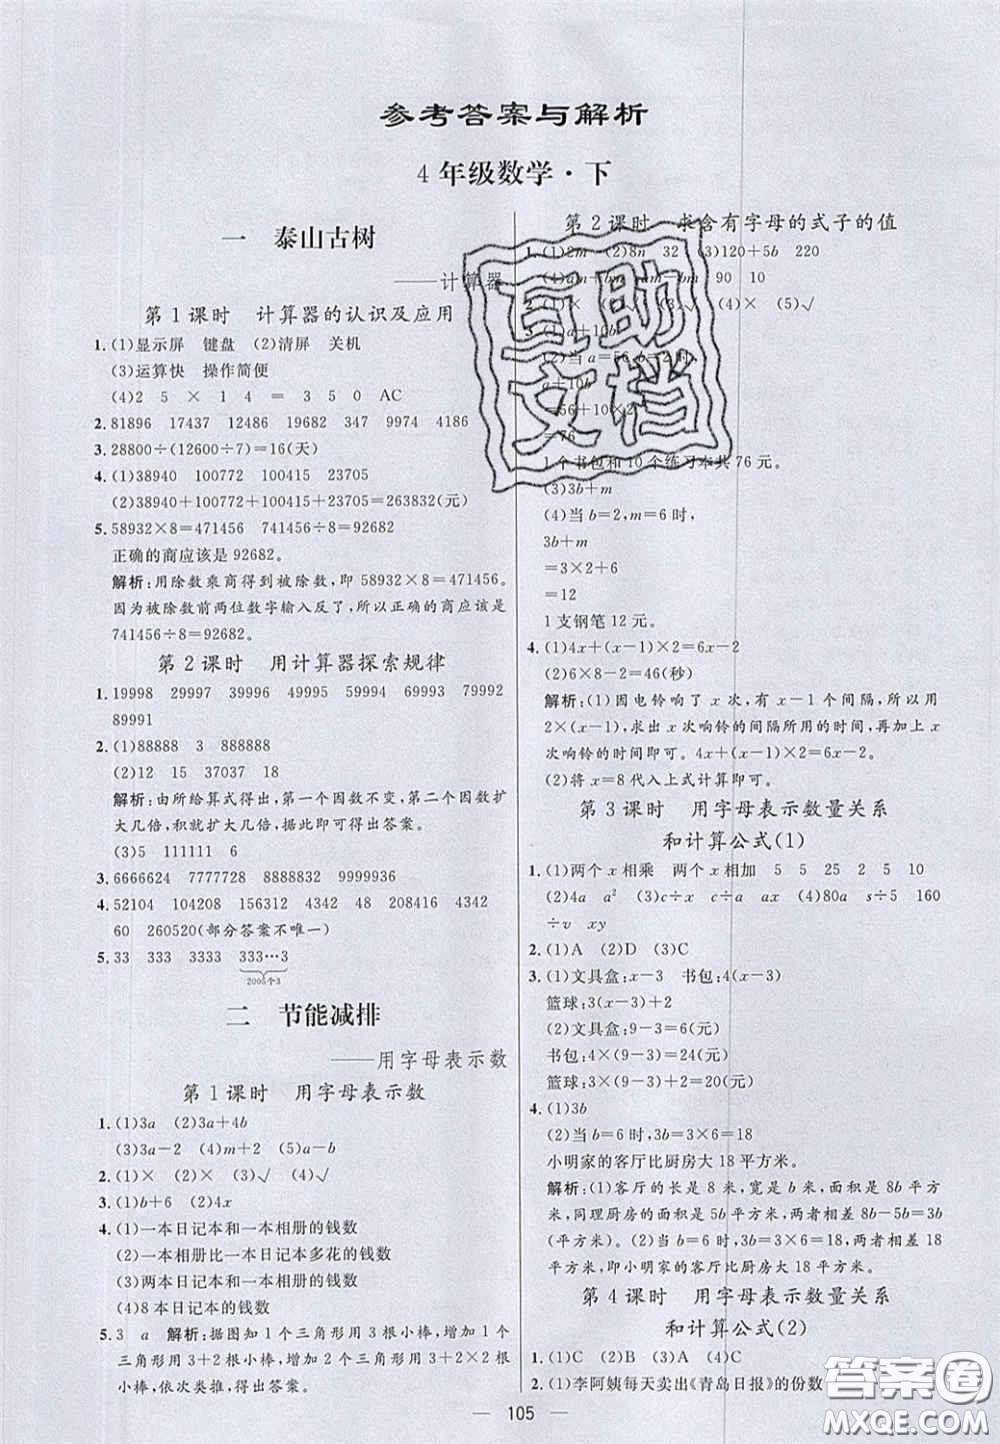 参考答案与解析
4年级数学·下
一 泰山古树
——计算器
第1课时 计算器的认识及应用
1.(1)显示屏 键盘 (2)清屏 关机
(3)运算快 操作简便
(4)2 5 × 1 4 = 3 5 0 AC
2.81896 17437 12486 19682 8767 4796
3.28800÷(12600÷7)=16(天)
4.(1)38940 100772 100415 23705
(2)38940+100772+100415+23705=263832(元)
5.58932×8=471456 741456÷8=92682
正确的商应该是92682。
解析:用除数乘商得到被除数,即58932×8=471456。
因为被除数前两位数字输入反了,所以正确的商应该是
741456÷8=92682。
第2课时 用计算器探索规律
1.19998 29997 39996 49995 59994 69993 79992
89991
2.(1)88888 3 888888
(2)12 15 37037 18
解析:由所给算式得出,第一个因数不变,第二个因数扩
大几倍,积就扩大几倍,据此即可得出答案。
(3)5 111111 6
3.6666624 7777728 8888832 9999936
4.52104 104208 156312 4342 48 208416 4342
60 260520(部分答案不唯一)
5.33 333 3333 333…3
2005个3
二 节能减排
——用字母表示数
第1课时 用字母表示数
1.(1)3a (2)3a+4b
(3)3a-2 (4)m+2 (5)a-b
2.(1)× (2)× (3)√ (4)√
3.(1)b+6 (2)4x
4.(1)一本日记本和一本相册的钱数
(2)一本相册比一本日记本多花的钱数
(3)两本日记本和一本相册的钱数
(4)8本日记本的钱数
5.3 a 解析:据图知1个三角形用3根小棒,增加1个
三角形用3+2根小棒,增加2个三角形用3+2×2根
小棒,依次类推,得出答案。
第2课时 求含有字母的式子的值
1.(1)2m (2)8n 32 (3)120+5b 220
bm 90 10
(4)× (5)√
(2)当a=56,b=2时,
=56+10×2
=76
1个书包和10个练习本共76元。
(3)3b+m
(4)当b=2,m=6时,
3b+m
=3×2+6
=12
1支钢笔12元。
4.(1)4x+(x-1)×2=6x-2
(2)6×8-2=46(秒)
解析:(1)因电铃响了x次,有x-1个间隔,所以用
2×(x-1),求出x次响铃的间隔所用的时间,再加上x
次响铃的时间即可。4x+(x-1)×2=6x-2。
(2)将x=8代入上式计算即可。
第3课时 用字母表示数量关系
和计算公式(1)
1.(1)两个x相乘 两个x相加 5 5 25 2 5 10
(2)4a a² (3)c÷x c÷a ax (4)s÷5 160
÷v xy
2.(1)A (2)D (3)C
3.(1)文具盒:x-3 书包:4(x-3)
篮球:3(x-3)+2
(2)文具盒:9-3=6(元)
书包:4×(9-3)=24(元)
篮球:3×(9-3)+2=20(元)
4.(1)3b
(2)当b=6时,3b=3×6=18
小明家的客厅比厨房大18平方米。
解析:(1)客厅的长是8米,宽是b米,面积是8b平方
米,同理厨房的面积是5b平方米,两者相差8b-5b=3b
(平方米)。(2)当b=6时,3b=3×6=18,两者相差18
平方米,即小明家的客厅比厨房大18平方米。
第4课时 用字母表示数量关系
和计算公式(2)
1.(1)C (2)B (3)A (4)D
2.(1)李阿姨每天卖出《青岛日报》的份数
互助
文档
— 105 —
答案圈
MXQE.COM